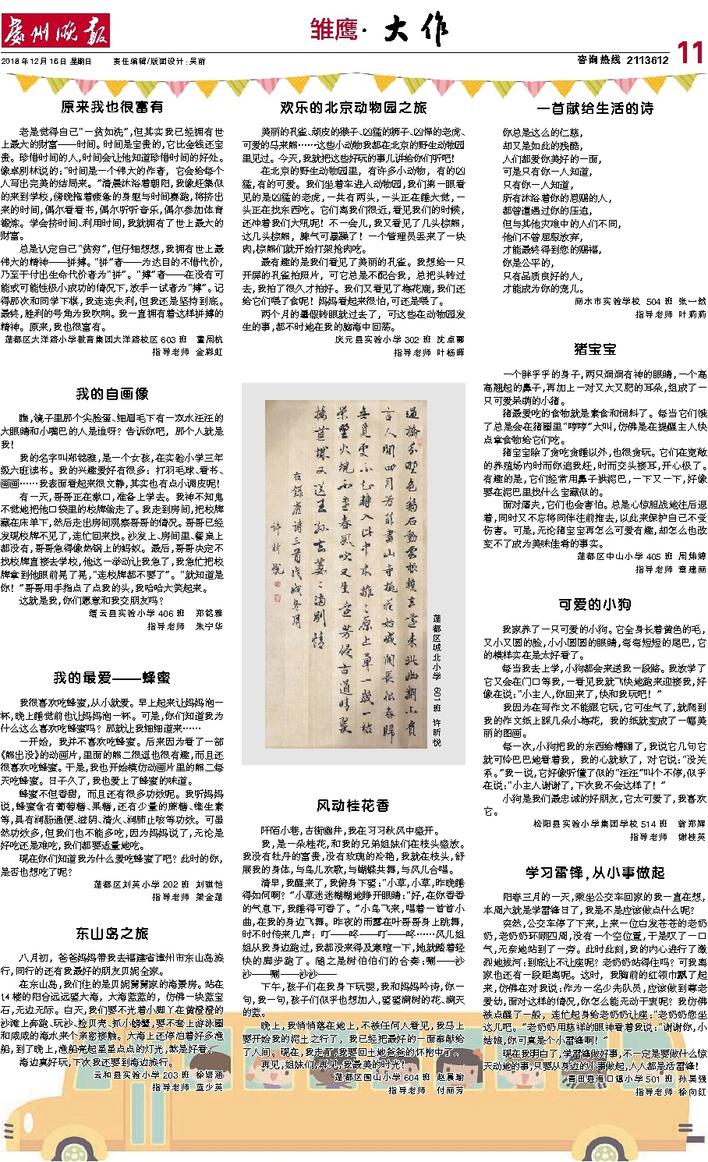 處州晚报
2018年12月16日 星期日
责任编辑/版面设计:吴丽
雏鹰·大作
咨询热线 2113612
11
原来我也很富有
老是觉得自己“一贫如洗”,但其实我已经拥有世
上最大的财富——时间。时间是宝贵的,它比金钱还宝
贵。珍惜时间的人,时间会让他知道珍惜时间的好处。
像牟别林说的:“时间是一个伟大的作者,它会给每个
人写出完美的结局来。”清晨沐浴着朝阳,我像赶集似
的来到学校,傍晚拖着疲备的身躯与时间赛跑,将挤出
来的时间,偶尔看看书,偶尔听听音乐,偶尔参加体育
锻炼。学会挤时间、利用时间,我就拥有了世上最大的
财富。
总是认定自己“贫穷”,但仔细想想,我拥有世上最
伟大的精神——拼搏。“拼”者——为达目的不惜代价,
乃至于付出生命代价者为“拼”。“搏”者——在没有可
能或可能性极小成功的情况下,放手一试者为“搏”。记
得那次和同学下棋,我连连失利,但我还是坚持到底。
最终,胜利的号角为我吹响。我一直拥有着这样拼搏的
精神。原来,我也很富有。
莲都区大洋路小学教育集团大洋路校区 603 班 董周杭
指导老师 金彩虹
我的自画像
瞧,镜子里那个尖脸蛋、细眉毛下有一双水汪汪的
大眼睛和小嘴巴的人是谁呀?告诉你吧,那个人就是
我!
我的名字叫郑铭雅,是一个女孩,在实验小学三年
级六班读书。我的兴趣爱好有很多:打羽毛球、看书、
画画……我表面看起来很文静,其实也有点小调皮呢!
有一天,哥哥正在漱口,准备上学去。我神不知鬼
不觉地把他口袋里的校牌偷走了。我走到房间,把校牌
藏在床单下,然后走出房间观察哥哥的情况。哥哥已经
发现校牌不见了,连忙回来找。沙发上、房间里、餐桌上
都没有,哥哥急得像热锅上的蚂蚁。最后,哥哥决定不
找校牌直接去学校,他这一举动让我急了,我急忙把校
牌拿到他眼前晃了晃,“连校牌都不要了”。“就知道是
你!”哥哥用手指点了点我的头,我哈哈大笑起来。
这就是我,你们愿意和我交朋友吗?
缙云县实验小学 406 班 郑铭雅
指导老师 朱宁华
我的最爱——蜂蜜
我很喜欢吃蜂蜜,从小就爱。早上起来让妈妈泡一
杯,晚上睡觉前也让妈妈泡一杯。可是,你们知道我为
什么这么喜欢吃蜂蜜吗?那就让我细细道来……
一开始,我并不喜欢吃蜂蜜。后来因为看了一部
《熊出没》的动画片,里面的熊二很逗也很有趣,而且还
很喜欢吃蜂蜜。于是,我也开始模仿动画片里的熊二每
天吃蜂蜜。日子久了,我也爱上了蜂蜜的味道。
蜂蜜不但香甜,而且还有很多功效呢。我听妈妈
说,蜂蜜含有葡萄糖、果糖,还有少量的蔗糖、维生素
等,具有润肠通便、滋阴、清火、润肺止咳等功效。可虽
然功效多,但我们也不能多吃,因为妈妈说了,无论是
好吃还是难吃,我们都要适量地吃。
现在你们知道我为什么爱吃蜂蜜了吧?此时的你,
是否也想吃了呢?
莲都区刘英小学 202 班 刘骐恺
指导老师 梁金莲
东山岛之旅
八月初,爸爸妈妈带我去福建省漳州市东山岛旅
行,同行的还有我最好的朋友贝妮全家。
在东山岛,我们住的是贝妮舅舅家的海景房。站在
14 楼的阳台远远望大海,大海蓝蓝的,仿佛一块蓝宝
石,无边无际。白天,我们要不光着小脚丫在黄澄澄的
沙滩上奔跑、玩沙、捡贝壳、抓小螃蟹,要不套上游泳圈
和咸咸的海水来个亲密接触。大海上还停泊着好多渔
船,到了晚上,渔船亮起星星点点的灯光,煞是好看。
海边真好玩,下次我还要到海边旅行。
云和县实验小学 203 班 徐翊涵
指导老师 蓝少英
欢乐的北京动物园之旅
美丽的孔雀、顽皮的猴子、凶猛的狮子、凶悍的老虎、
可爱的马来熊……这些小动物我都在北京的野生动物园
里见过。今天,我就把这些好玩的事儿讲给你们听吧!
在北京的野生动物园里,有许多小动物,有的凶
猛,有的可爱。我们坐着车进入动物园,我们第一眼看
见的是凶猛的老虎,一共有两头,一头正在睡大觉,一
头正在找东西吃。它们离我们很近,看见我们的时候,
还冲着我们大吼呢!不一会儿,我又看见了几头棕熊,
这几头棕熊,脾气可暴躁了!一个管理员丢来了一块
肉,棕熊们就开始打架抢肉吃。
最有趣的是我们看见了美丽的孔雀。我想给一只
开屏的孔雀拍照片,可它总是不配合我,总把头转过
去,我拍了很久才拍好。我们又看见了梅花鹿,我们还
给它们喂了食呢!妈妈看起来很怕,可还是喂了。
两个月的暑假转眼就过去了,可这些在动物园发
生的事,都不时地在我的脑海中回荡。
庆元县实验小学 302 班 沈卓郦
指导老师 叶杨晖
莲都区城北小学 601 班 许昕悦
风动桂花香
阡陌小巷,古街幽井,我在习习秋风中盛开。
我,是一朵桂花,和我的兄弟姐妹们在枝头盛放。
我没有牡丹的富贵,没有玫瑰的冷艳,我就在枝头,舒
展我的身体,与鸟儿欢歌,与蝴蝶共舞,与风儿合唱。
清早,我醒来了,我俯身下望:“小草,小草,昨晚睡
得如何啊?”小草迷迷糊糊地睁开眼睛:“好,在你香香
的气息下,我睡得可香了。”小鸟飞来,唱着一首首小
曲,在我的身边飞舞。昨夜的雨露在叶哥哥身上跳舞,
时不时传来几声:叮——咚——叮——咚……风儿姐
姐从我身边跑过,我都没来得及寒暄一下,她就踏着轻
快的脚步跑了。随之是树伯伯们的合奏:唰——沙
沙——唰——沙沙——
下午,孩子们在我身下玩耍,我和妈妈吟诗,你一
句,我一句,孩子们似乎也想加入,望望满树的花、满天
的蓝。
晚上,我悄悄落在地上,不被任何人看见,我马上
要开始我的泥土之行了,我已经把最好的一面奉献给
了人间。现在,我走了,我要回土地爸爸的怀抱中了。
再见,姐妹们,再见,我最美的时光!
莲都区囿山小学 604 班 赵晨瑜
指导老师 付丽芳
一首献给生活的诗
你总是这么的仁慈,
却又是如此的残酷,
人们都爱你美好的一面,
可是只有你一人知道,
只有你一人知道,
所有沐浴着你的恩赐的人,
都曾遭遇过你的压迫,
但与其他灾难中的人们不同,
他们不曾屈服放弃,
才能最终得到您的赐福,
你是公平的,
只有品质良好的人,
才能成为你的宠儿。
丽水市实验学校 504 班 张一然
指导老师 叶莉莉
猪宝宝
一个胖乎乎的身子,两只炯炯有神的眼睛,一个高
高翘起的鼻子,再加上一对又大又肥的耳朵,组成了一
只可爱呆萌的小猪。
猪最爱吃的食物就是素食和饲料了。每当它们饿
了总是会在猪圈里“哼哼”大叫,仿佛是在提醒主人快
点拿食物给它们吃。
猪宝宝除了贪吃贪睡以外,也很贪玩。它们在宽敞
的养殖场内时而你追我赶,时而交头接耳,开心极了。
有趣的是,它们经常用鼻子拱泥巴,一下又一下,好像
要在泥巴里找什么宝藏似的。
面对屠夫,它们也会害怕。总是心惊胆战地往后退
着,同时又不忘将同伴往前推去,以此来保护自己不受
伤害。可是,无论猪宝宝再怎么可爱有趣,却怎么也改
变不了成为美味佳肴的事实。
莲都区中山小学 405 班 周炜婷
指导老师 章建丽
可爱的小狗
我家养了一只可爱的小狗。它全身长着黄色的毛,
又小又圆的脸,小小圆圆的眼睛,弯弯短短的尾巴,它
的模样实在是太好看了。
每当我去上学,小狗都会来送我一段路。我放学了
它又会在门口等我,一看见我就飞快地跑来迎接我,好
像在说:“小主人,你回来了,快和我玩吧!”
我因为在写作文不能跟它玩,它可生气了,就爬到
我的作文纸上踩几朵小梅花,我的纸就变成了一幅美
丽的图画。
每一次,小狗把我的东西给糟蹋了,我说它几句它
就可怜巴巴地看着我,我的心就软了,对它说:“没关
系。”我一说,它好像听懂了似的“汪汪”叫个不停,似乎
在说:“小主人谢谢了,下次我不会这样了!”
小狗是我们最忠诚的好朋友,它太可爱了,我喜欢
它。
松阳县实验小学集团学校 514 班 翁郑辉
指导老师 谢桂英
学习雷锋,从小事做起
阳春三月的一天,乘坐公交车回家的我一直在想,
本周六就是学雷锋日了,我是不是应该做点什么呢?
突然,公交车停了下来,上来一位白发苍苍的老奶
奶,老奶奶环顾四周,没有一个空位置,于是叹了一口
气,无奈地站到了一旁。此时此刻,我的内心进行了激
烈地拔河:到底让不让座呢?老奶奶站得住吗?可我离
家也还有一段距离呢。这时,我胸前的红领巾飘了起
来,仿佛在对我说:作为一名少先队员,应该做到尊老
爱幼,面对这样的情况,你怎么能无动于衷呢?我仿佛
被点醒了一般,连忙起身给老奶奶让座:“老奶奶您坐
这儿吧。”老奶奶用慈祥的眼神看着我说:“谢谢你,小
姑娘,你可真是个小雷锋啊!”
现在我明白了,学雷锋做好事,不一定是要做什么惊
天动地的事,只要从身边的小事做起,人人都是活雷锋!
青田县海口镇小学 501 班 孙昊强
指导老师 徐向红